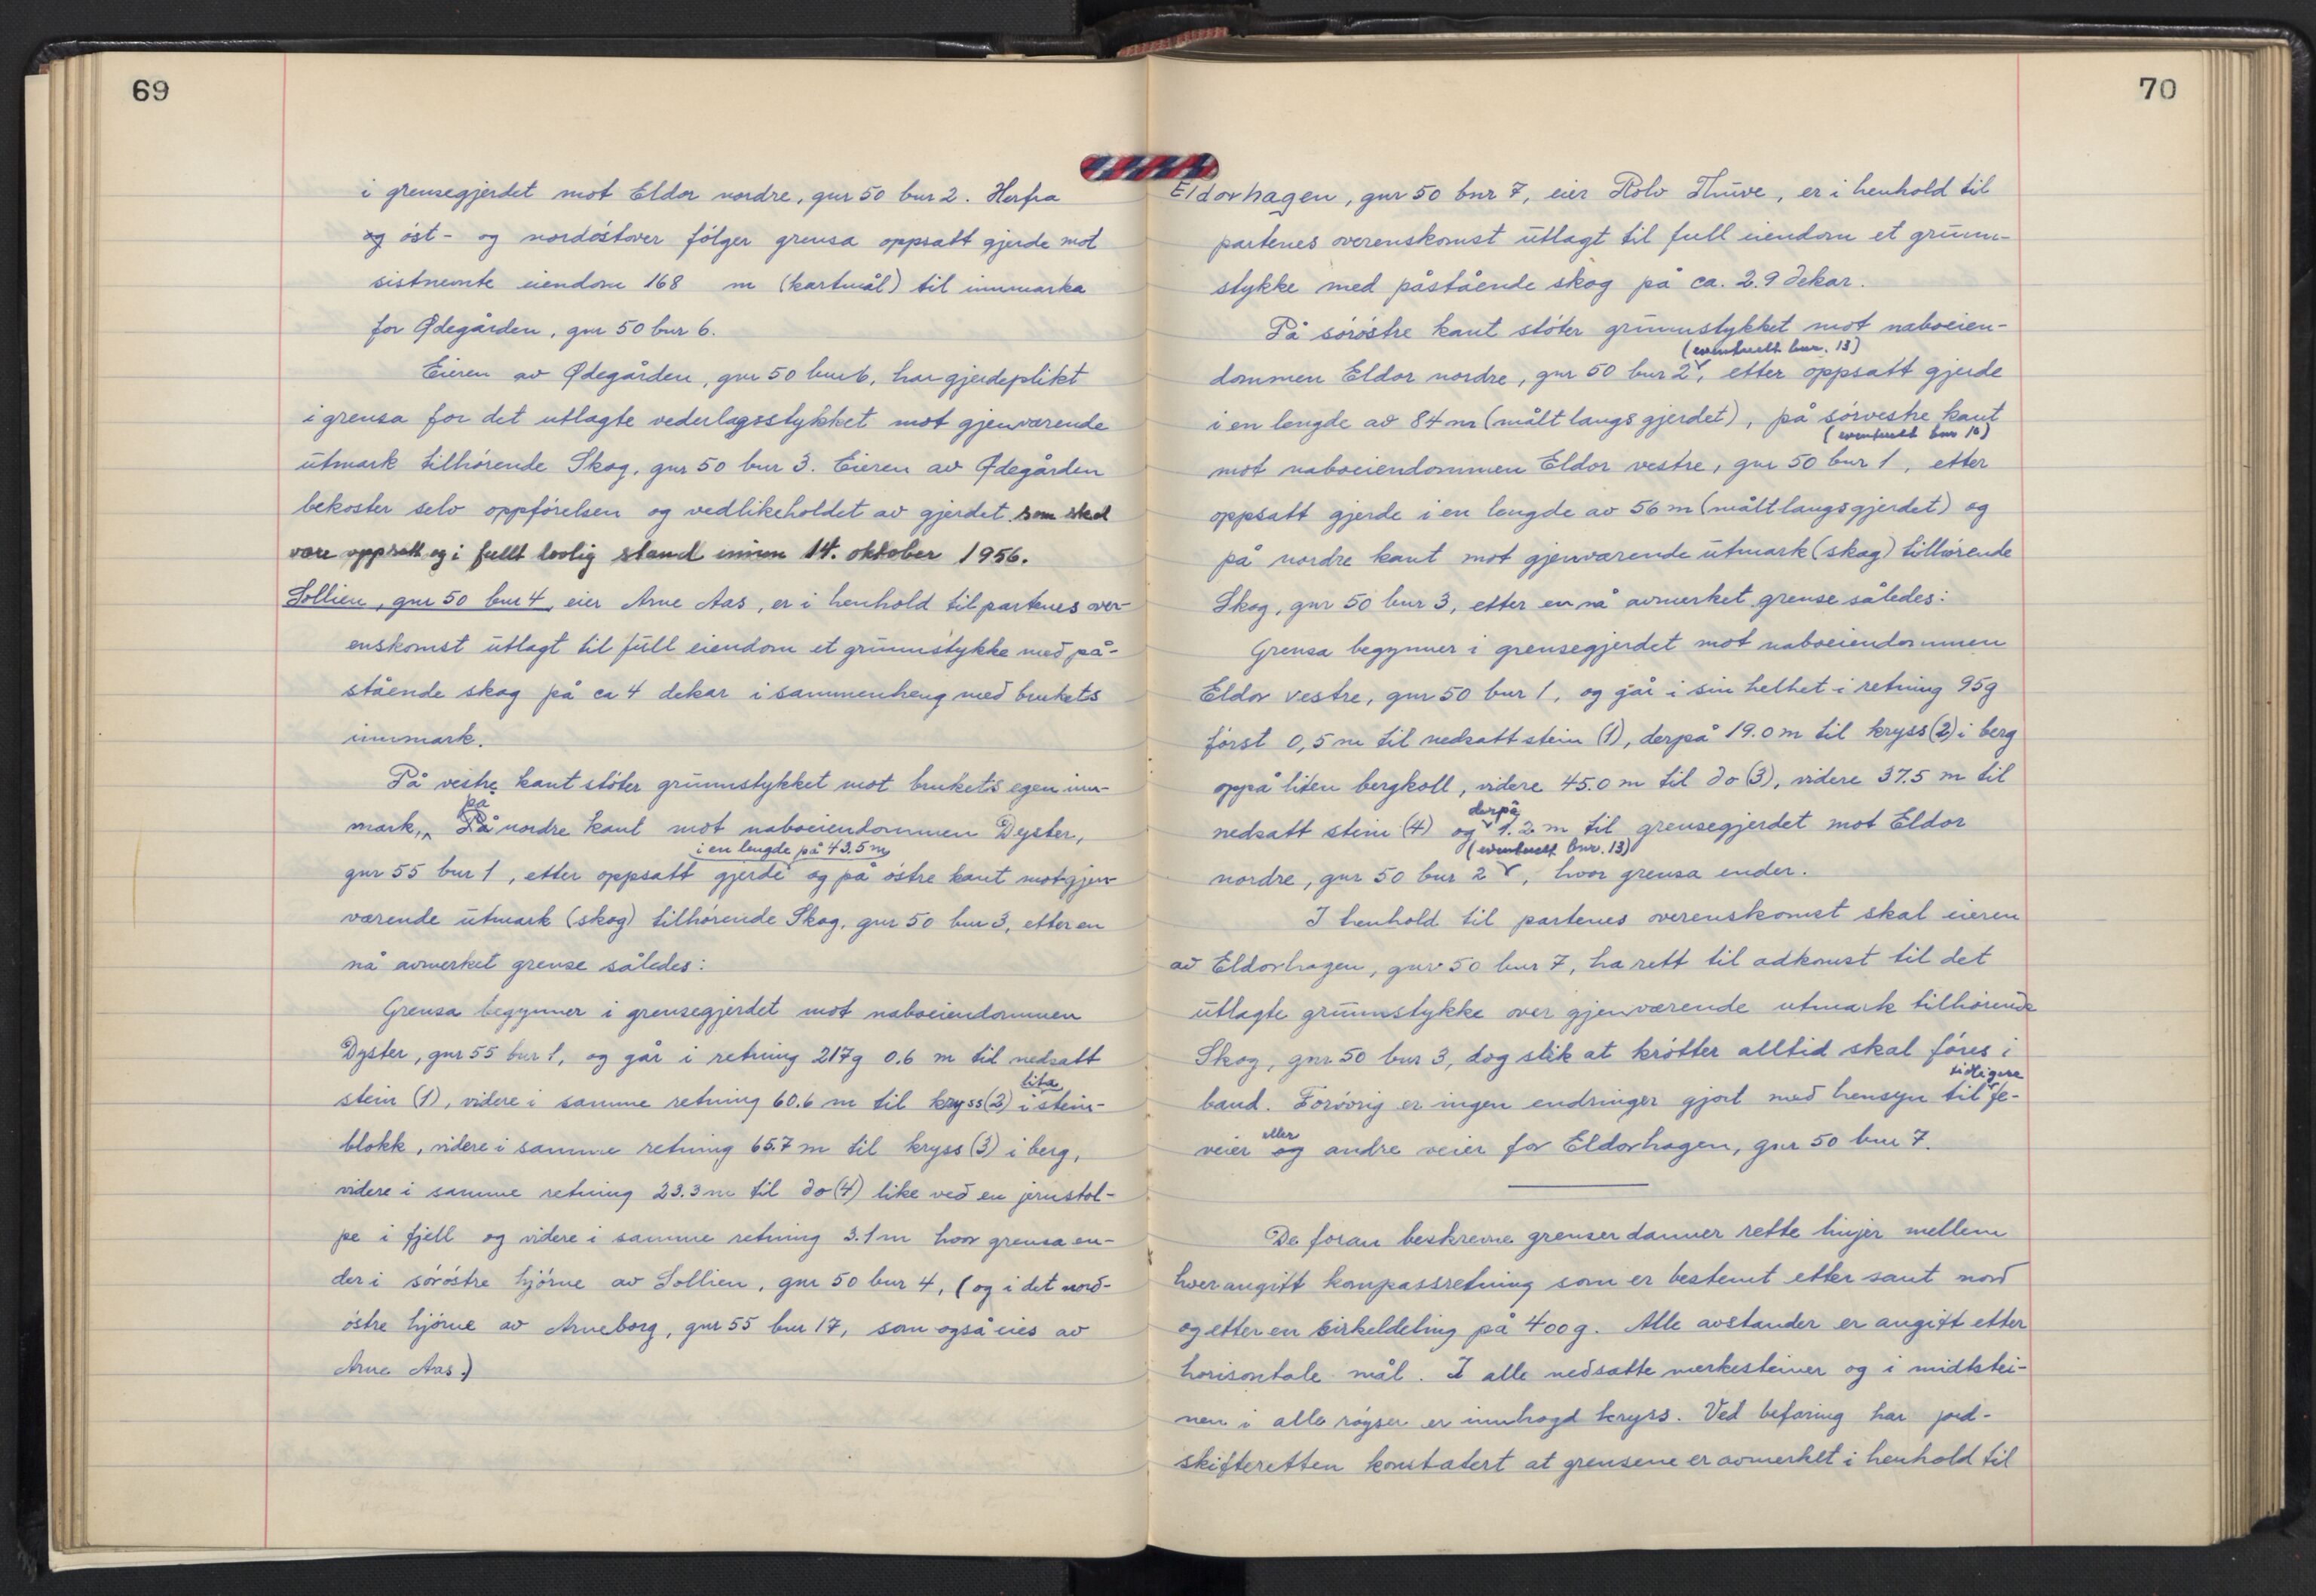 69
i grensegjerdet mot Eldor nordre, gnr 50 bnr 2. Herfra
og öst- og nordöstover fölger grensa oppsatt gjerde mot
sistnemte eiendom 168 m (kartmål) til innmarka
for Ødegården, gnr 50 bnr 6.
Eieren av Ødegården, gnr 50 bnr 6, har gjerdeplikt
i grensa for det utlagte vederlagsstykket mot gjenværende
utmark tilhörende Skog, gnr 50 bnr 3. Eieren av Ødegården
bekoster selv oppförelsen og vedlikeholdet av gjerdet som skal
være oppsatt og i fullt lovlig stand innen 14. oktober 1956.
Sollien, gnr 50 bnr 4, eier Arne Aas, er i henhold til partenes over-
enskomst utlagt til full eiendom et grunnstykke med på-
stående skog på ca 4 dekar i sammenheng med brukets
innmark.
På vestre kant stöter grunnstykket mot brukets egen inn-
på
mark, På nordre kant mot naboeiendommen Dyster,
i en lengde på 43.5 m
gnr 55 bnr 1, etter oppsatt gjerde og på östre kant mot gjen-
værende utmark (skog) tilhörende Skog, gnr 50 bnr 3, etter en
nå avmerket grense således:
Grensa begynner i grensegjerdet mot naboeiendommen
Dyster, gnr 55 bnr 1, og går i retning 217g 0.6 m til nedsatt
lita
stein (1), videre i samme retning 60.6 m til kryss (2) i stein-
blokk, videre i samme retning 65.7 m til kryss (3) i berg,
videre i samme retning 23.3 m til do (4) like ved en jernstol-
pe i fjell og videre i samme retning 3.1 m hvor grensa en-
der i söröstre hjörne av Sollien, gnr 50 bnr 4, (og i det nord-
östre hjörne av Arneborg, gnr 55 bnr 17, som også eies av
Arne Aas.)
70
Eldorhagen, gnr 50 bnr 7, eier Rolv Thuve, er i henhold til
partenes overenskomst utlagt til full eiendom et grunn-
stykke med påstående skog på ca. 2.9 dekar.
På söröstre kant stöter grunnstykket mot naboeien-
(eventuelt bnr. 13)
dommen Eldor nordre, gnr 50 bnr 2, etter oppsatt gjerde
i en lengde av 84 m (målt langs gjerdet), på sörvestre kant
(eventuelt bnr 16)
mot naboeiendommen Eldor vestre, gnr 50 bnr 1, etter
oppsatt gjerde i en lengde av 56 m (målt langs gjerdet) og
på nordre kant mot gjenværende utmark (skog) tilhörende
Skog, gnr 50 bnr 3, etter en nå avmerket grense således:
Grensa begynner i grensegjerdet mot naboeiendommen
Eldor vestre, gnr 50 bnr 1, og går i sin helhet i retning 95g
först 0,5 m til nedsatt stein (1), derpå 19.0 m til kryss (2) i berg
oppå liten bergkoll, videre 45.0 m til do (3), videre 37.5 m til
derpå
nedsatt stein (4) og 1.2 m til grensegjerdet mot Eldor
(eventuelt bnr. 13)
nordre, gnr 50 bnr 2, hvor grensa ender.
I henhold til partenes overenskomst skal eieren
av Eldorhagen, gnr 50 bnr 7, ha rett til adkomst til det
utlagte grunnstykke over gjenværende utmark tilhörende
Skog, gnr 50 bnr 3, dog slik at krötter alltid skal föres i
tidligere
band. Forövrig er ingen endringer gjort med hensyn til fe-
eller
veier og andre veier for Eldorhagen, gnr 50 bnr 7.
De foran beskrevne grenser danner rette linjer mellem
hver angitt kompassretning som er bestemt etter sant nord
og etter en sirkeldeling på 400g. Alle avstander er angitt etter
horisontale mål. I alle nedsatte merkesteiner og i midtstei-
nen i alle röyser er innhogd kryss. Ved befaring har jord-
skifteretten konstatert at grensene er avmerket i henhold til